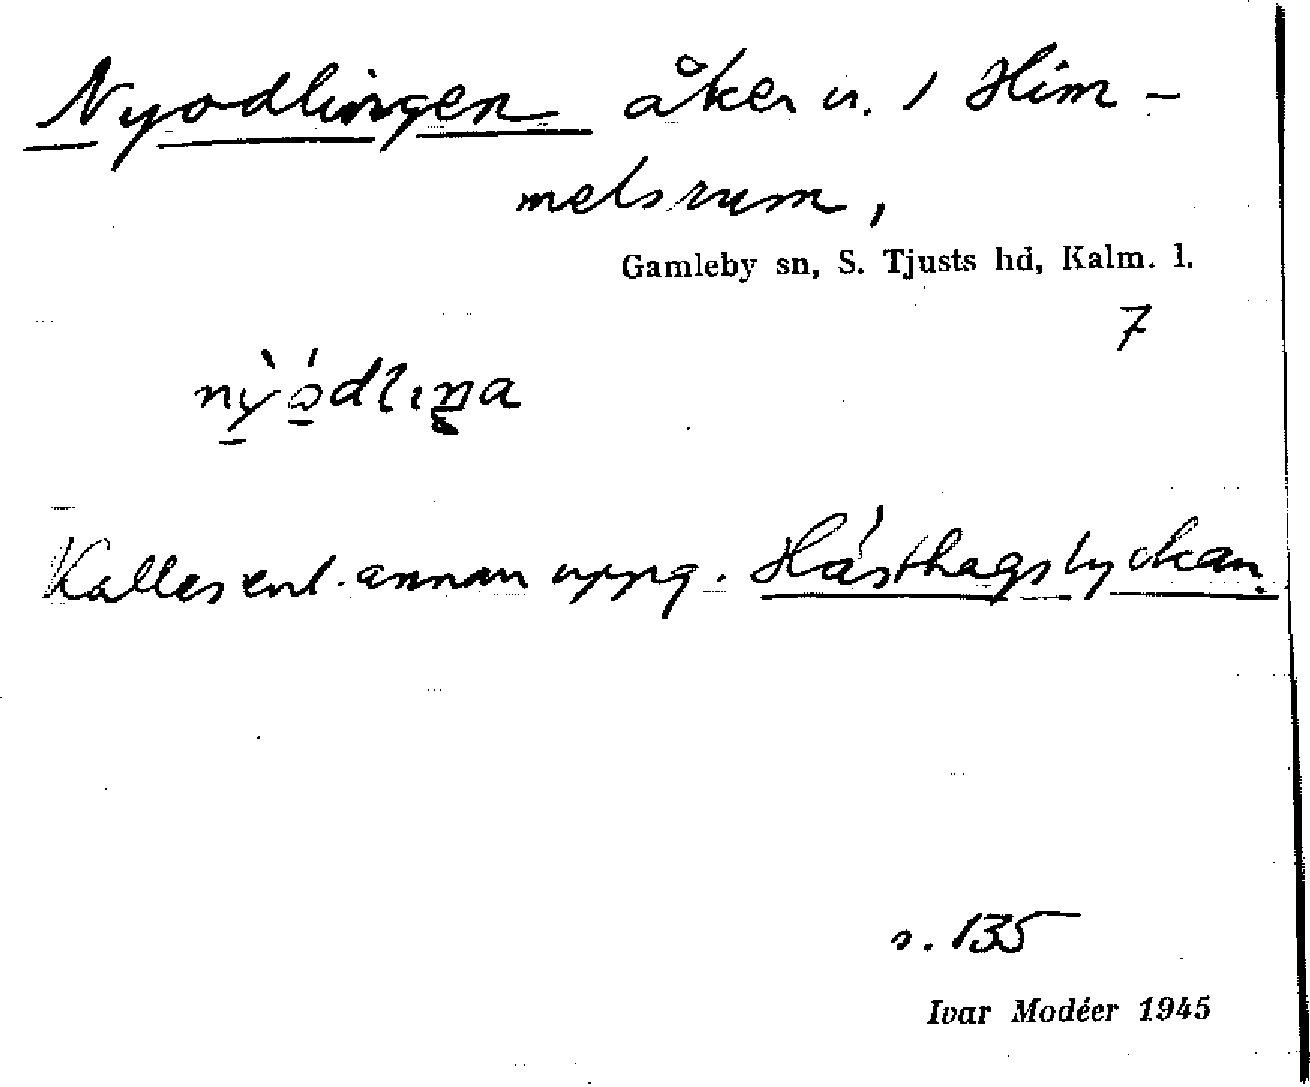 Nyodlingen åker u. 1 Him-
melsrum,
Gamleby sn, S. Tjusts hd, Kalm. l.
7
nỳọ́dlıŋa
Kallas enl. annan uppg. Hästhagslyckan.
s. 135
Ivar Modéer 1945